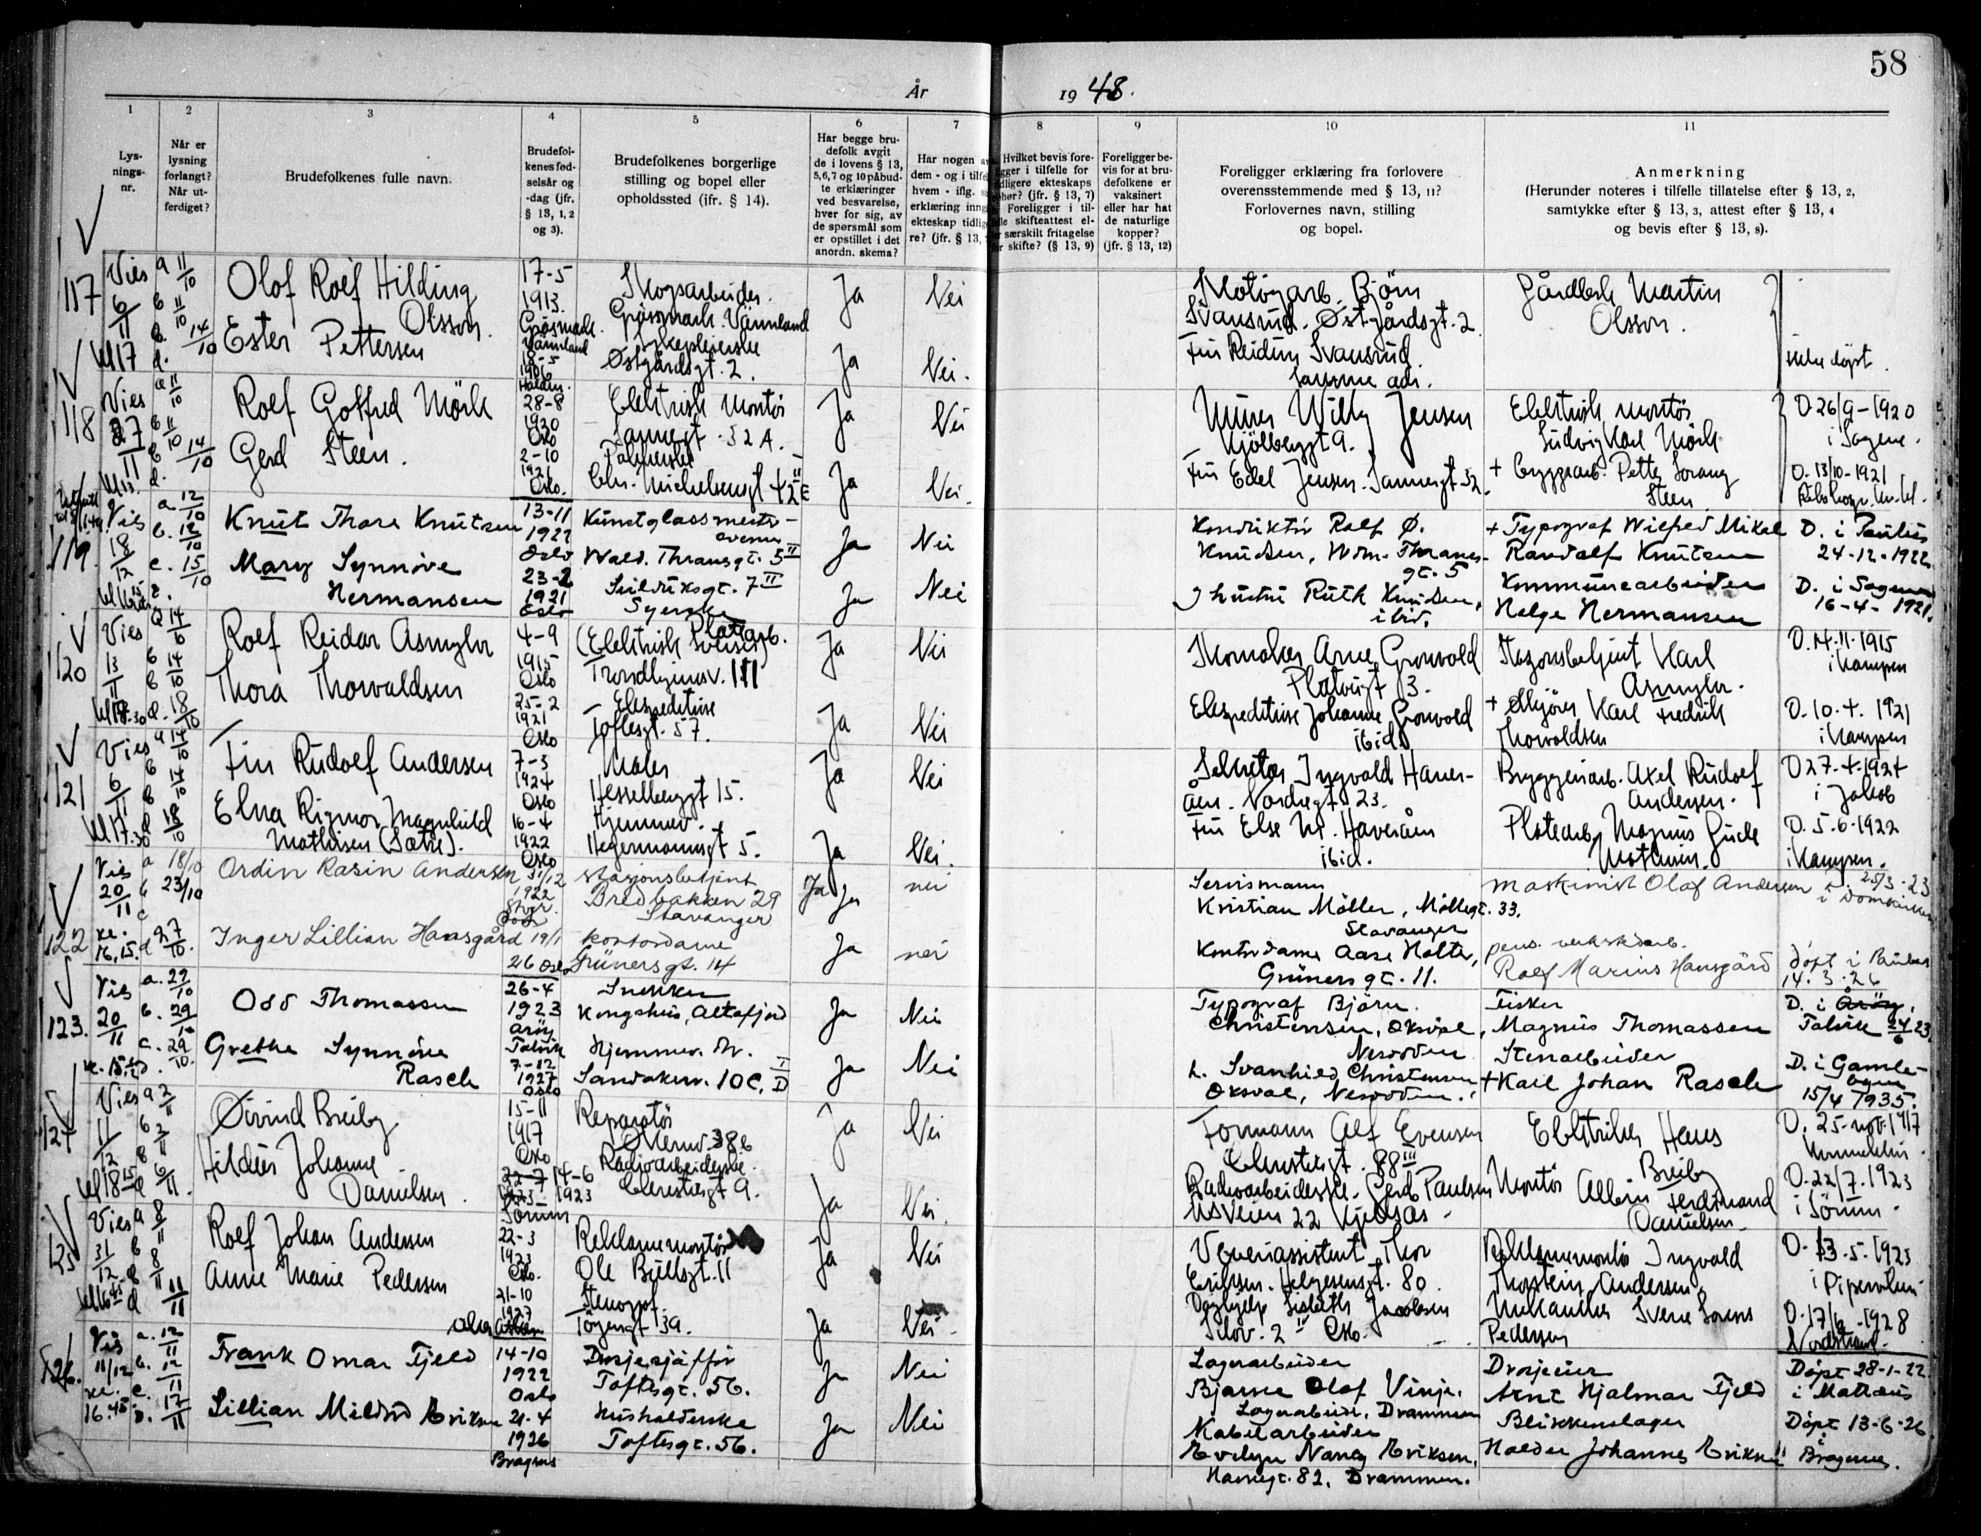 58
År 1948.
1 2 3 4 5 6 7 8 9 10 11
Lys-
nings-
nr.
Når er
lysning
forlangt?
Når ut-
ferdiget?
Brudefolkenes fulle navn.
Brudefol-
kenes fød-
selsår og
-dag (jfr.
§ 13, 1, 2
og 3).
Brudefolkenes borgerlige
stilling og bopel eller
opholdssted (ifr. § 14).
Har begge bru-
defolk avgit
de i lovens § 13,
5,6,7 og 10 påbud-
te erklæringer
ved besvarelse,
hver for sig, av
de spørsmål som
er opstillet i det
anordn. skema?
Har nogen
dem - og i
hvem - iflg.
erklæring
ekteskap
re? (jfr. § 13,
Hvilket bevis fore-
ligger i tilfelle for
tidligere ekteskaps
ophør? (jfr. § 13, 7)
Foreligger i til-
felle skifteattest el-
ler særskilt fritagelse
for skifte? (§ 13, 9)
Foreligger be-
vis for at bru-
defolkene er
vaksinert
eller har hat
de naturlige
kopper?
(jfr. § 13, 12)
Foreligger erklæring fra forlovere
overensstemmende med § 13, 11?
Forlovernes navn, stilling
og bopel.
Anmerkning
(Herunder noteres i tilfelle tillatelse efter § 13, 2,
samtykke efter § 13, 3, attest efter § 13, 4
og bevis efter § 13, 8).
117
Vies
6/11
kl 17
a 11/10
b 11/10
14/10
d.
Olof Rolf Hilding
Olsson.
Ester Pettersen
17-5
1913.
Gräsmark.
Värmland
18-5
1906
Halden.
Skogsarbeider.
Gräsmark. Värmland
Sykepleierske
Østgårdsgt. 2.
Ja
Nei
Ja
Nei.
Björn
Svansrud. Østgårdsgt. 2
Fru Reidun Svansrud
samme adr.
Martin
Olsson.
døpt.
118
Vies
27/11
a 11/10
b 11/10
14/10
d.
Rolf Gotfred Mörk
Gerd Steen.
28-8
1920
Oslo
2-10
1921
Oslo.
Elektrisk montör
Sannergt. 32 A.
Chr. Michelsensgt 42 II E
Ja
Nei
Ja
Nei.
Murer Willy Jensen
Kjölberggt 9.
Fru Edel Jensen. Sannergt 32.
Elektrisk montör
Ludvig Karl Mörk
+ byggearb. Petter
Steen
D. 26/9-1920
i Sagene.
D. 13/10-1921
119.
Vies
18/12
a. 12/10
b. 12/10
c. 15/10
Knut Thore Knutsen
Mary Synnöve
Hermansen
13-11
1922
Oslo
23-2
1921
Oslo
Kunstglassmester-
svenn
Wald. Thranesgt. 5 II
7 II
Syerske
Ja
Nei
Ja
Nei
Konduktör Rolf Ø.
Knudsen, Wdm. Thranes-
gt. 5
hustru Ruth Knudsen,
ibid.
+ Typograf Wilfred Mikal
Randolf Knutsen
Kommunearbeider
Helge Hermansen
D. i Paulus
24-12-1922
D. i Sagene
16-4-1921.
120
Vies
13/11
kl 18.30
14/10
b 14/10
d. 18/10
Rolf Reidar Asmyhr
Thora Thorvaldsen
4-9
1915
Oslo
25-2
1921
Oslo
(Elektrisk sveiser)
Platearb.
Trondhjemsv. 111
Ekspeditrise
Toftesgt. 57.
Ja
Nei
Ja
Nei
Skomaker Arne Gronvold
Platousgt 3.
Ekspeditrise Johanne Gronvold
ibid.
Stasjonsbetjent Karl
Asmyhr.
+ Karl Fredrik
Thorvaldsen
D. 14-11-1915
i Kampen
D. 10-4. 1921
i Kampen
121
Vies
6/11
kl 17.30
a 14/10
b 14/10
18/10
Finn Rudolf Andersen
Elna Rigmor Magnhild
Mathisen (Sætre).
7-3
1924
Oslo
16-4
1922
Oslo
Maler
Hesselberggt 15.
Hjemmev.
Hegermannsgt 5.
Ja
Nei
Ja
Nei.
Sekretær Ingvald Haver-
åen. Nordregt 23.
Fru Else M. Haveråen
ibid.
Bryggeriarb. Axel Rudolf
Andersen.
Platearb. Magnus
Mathisen.
D 27-4-1924
i Jakob
D. 5-6-1922
i Kampen.
122
Vies
20/11
kl.
16,15.
a 18/10
b 23/10
c
d 27/10.
Ordin Rasin Andersen
Inger Lillian Hansgård
31/12
1922
19/1
26 Oslo
stasjonsbetjent
Bredbakken 29
Stavanger
kontordame
Grünersgt. 14
Ja
nei
Ja
nei
Servismann
Kristian Möller, Möllegt. 33.
Stavanger
Kontordame Aase Holte,
Grüners gt. 11.
maskinist Olaf Andersen
25/3-23
i Domkirken
pens. verkstedarb.
Rolf Marius Hansgård
döpt i Paulus
14. 3. 26
123.
Vies
20/11
a. 29/10
b. 29/10
c. 29/10.
Odd Thomassen
Grethe Synnöve
Rasch
26-4
1923
Aröy
Talvik
7-12
1927
Oslo
Snekker
Kongshus, Altafjord
Hjemmev.
Sandakerv. 10 C, I D
Ja
Nei
Ja
Nei
Typograf Björn
Christensen, Oksval,
Nesodden
Svanhild Christensen
Oksval, Nesodden.
Fisker
Magnus Thomassen
Stenarbeider
+ Karl Johan Rasch
D. i Aröy,
Talvik 24/6 23
D. i Gamle-
byen
15/4 1935.
124
Vies
11/12
kl 18 15
a 2/11
b 2/11
d 6/11.
Øivind Breiby
Hildur Johanne
Danielsen.
15-11
1917
Oslo
22-7 14-6
1923 1923
Sörum
Reparatör
38 b
Radioarbeiderske.
9.
Ja
Nei
Ja
Nei.
Formann Alf Evensen
88 III
Radioarbeiderske. Gerd Paulsen
22 Kjelsås
Elektriker Hans
Breiby
Montör Albin Ferdinand
Danielsen
D. 25-nov.-1917
D. 22/7. 1923
i Sörum.
125
Vies
31/12
kl 16 45
a 8/11
b 8/11
d 11/11
Rolf Johan Andersen
Anne Marie Pedersen
22-3
1923
Oslo.
21-10
1927
Aker
Reklamemontör
Ole Bullsgt. 11
Stenograf.
Töyengt 39a.
Ja
Nei
Ja
Nei
Thor
Eriksen. Helgesensgt. 80
Lisbeth Jacobsen
Reklamemontör Ingvald
Thorstein Andersen.
Mekaniker Sverre Lorens
Pedersen
D. 13-5-1923
i Piperviken
D. 17/6-1928
Nordstrand.
126.
Vies
11/12
kl.
16.45
a. 12/11
b. 12/11
c.
D. 17/11
Frank Omar Fjeld
Lillian Mildrid Eriksen
14-10
1922
Oslo
21-4
1926
Bragernes
Drosjesjåfför
Toftesgt. 56.
Husholderske
Toftesgt. 56.
Ja
Nei
Ja
Nei
Lagerarbeider
Bjarne Olaf Vinje.
Lagerarbeider, Drammen
Kabelarbeider
Evelyn Nancy Eriksen,
Havnegt. 82, Drammen.
Drosjeeier
Arnt Hjalmar Fjeld
Blikkenslager
Halder Johannes Eriksen
Döpt 28-1-22
i Matteus
Döpt 13-6-26
i
Bragernes.